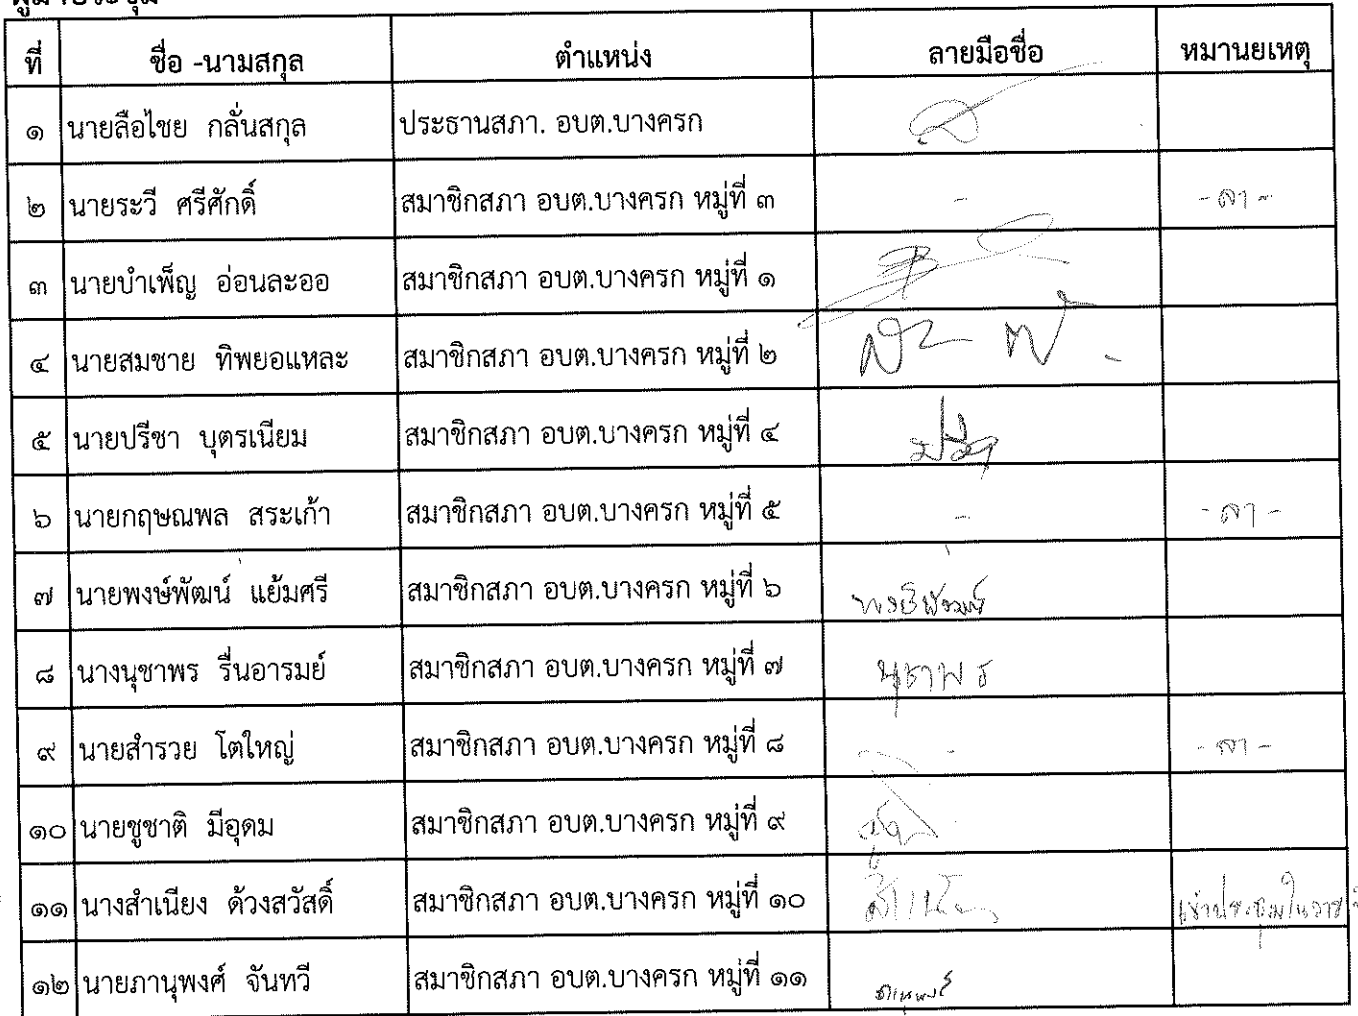 ที่ ชื่อ -นามสกุล ตำแหน่ง ลายมือชื่อ หมานยเหตุ
๑ นายลือไชย กลั่นสกุล ประธานสภา. อบต.บางครก
๒ นายระวี ศรีศักดิ์ สมาชิกสภา อบต.บางครก หมู่ที่ ๓ - -ลา-
๓ นายบำเพ็ญ อ่อนละออ สมาชิกสภา อบต.บางครก หมู่ที่ ๑
๔ นายสมชาย ทิพยอแหละ สมาชิกสภา อบต.บางครก หมู่ที่ ๒
๕ นายปรีชา บุตรเนียม สมาชิกสภา อบต.บางครก หมู่ที่ ๔ ปรีชา
๖ นายกฤษณพล สระเก้า สมาชิกสภา อบต.บางครก หมู่ที่ ๕ - -ลา-
๗ นายพงษ์พัฒน์ แย้มศรี สมาชิกสภา อบต.บางครก หมู่ที่ ๖ พงษ์พัฒน์
๘ นางนุชาพร รื่นอารมย์ สมาชิกสภา อบต.บางครก หมู่ที่ ๗ นุชาพร
๙ นายสำรวย โตใหญ่ สมาชิกสภา อบต.บางครก หมู่ที่ ๘ - -ลา-
๑๐ นายชูชาติ มีอุดม สมาชิกสภา อบต.บางครก หมู่ที่ ๙
๑๑ นางสำเนียง ด้วงสวัสดิ์ สมาชิกสภา อบต.บางครก หมู่ที่ ๑๐ สำเนียง เข้าประชุมในวาระ
๑๒ นายภานุพงศ์ จันทวี สมาชิกสภา อบต.บางครก หมู่ที่ ๑๑ ภานุพงศ์